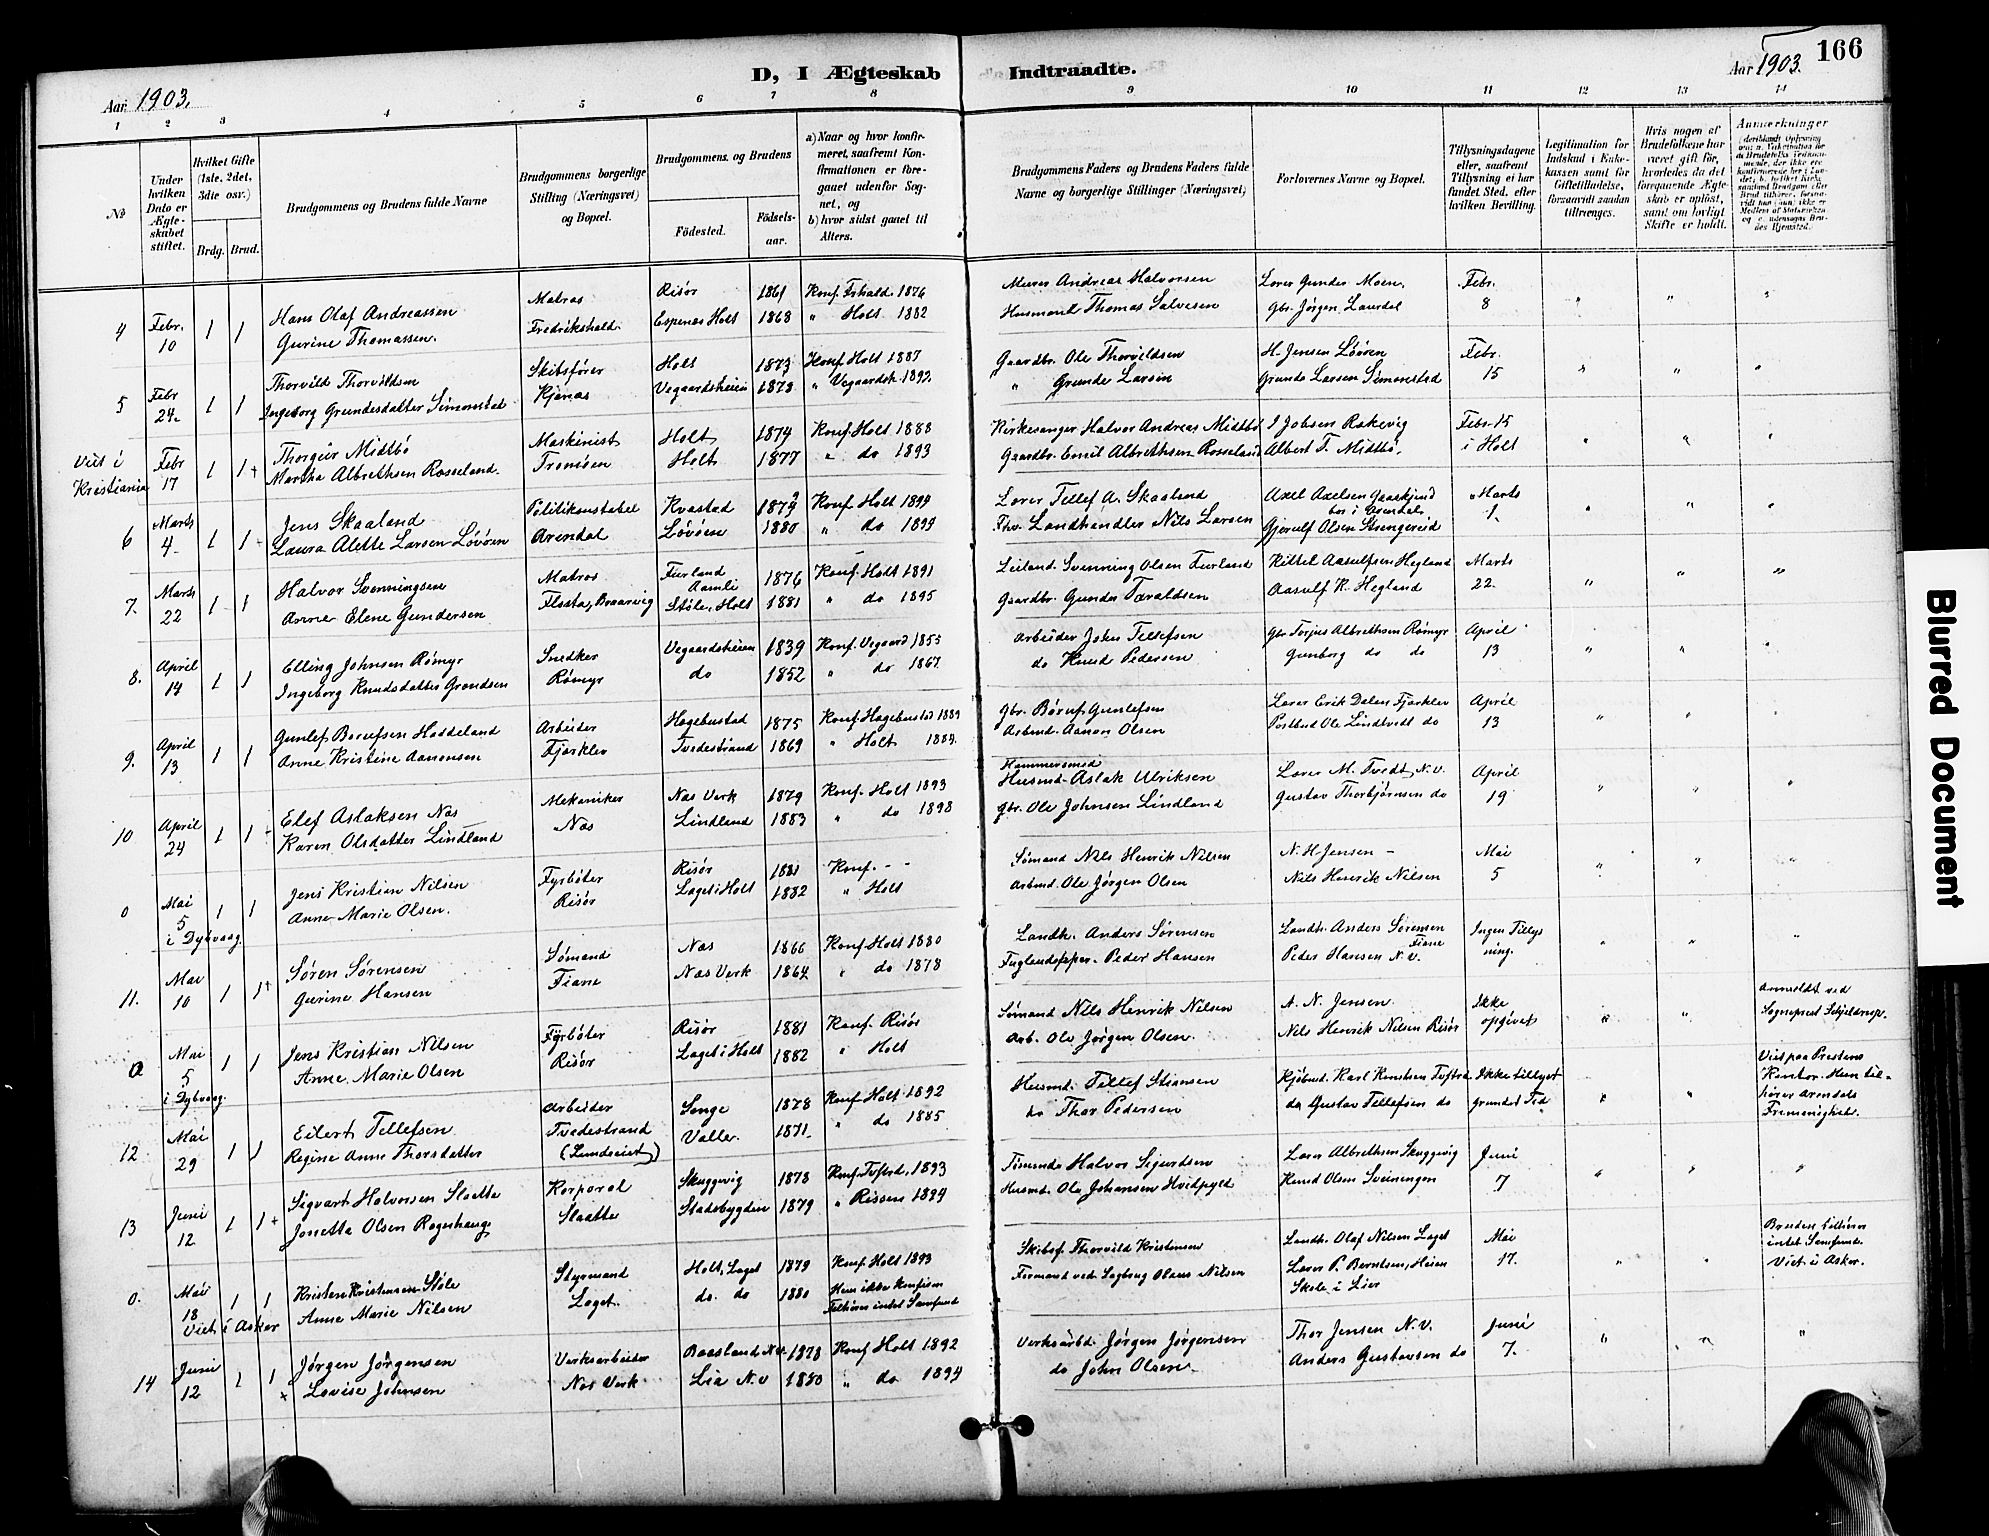 166
D, I Ægteskab Indtraadte.
Aar 1903. Aar 1903.
1 2 3 4 5 6 7 8 9 10 11 12 13 14
No
Under hvilken Dato er Ægteskabet stiftet.
Hvilket Gifte (1ste, 2det, 3die osv.)
Brdg. Brud.
Brudgommens og Brudens fulde Navne
Brudgommens borgerlige Stilling (Næringsvei) og Bopæl.
Brudgommens og Brudens
Födested. Födselsaar.
a) Naar og hvor konfirmeret, saafremt Konfirmationen er foregaaet udenfor Sognet, og
b) hvor sidst gaaet til Alters.
Brudgommens Faders og Brudens Faders fulde Navne og borgerlige Stillinger (Næringsvei)
Forlovernes Navne og Bopæl.
Tillysningsdagene eller, saafremt Tillysning ei har fundet Sted, efter hvilken Bevilling.
Legitimation for Indskud i Enkekassen samt for Giftetilladelse, forsaavidt saadan tiltrænges.
Hvis nogen af Brudefolkene har været gift för, hvorledes da det foregaaende Ægteskab er oplöst, samt om lovligt Skifte er holdt.
Anmærkninger
4 Febr. 10 1 1 Hans Olaf Andreassen Matros Risør 1861 Konf. Frhald. 1876 Murer Andreas Halvorsen Lærer Gunder Moen, Febr. 8
Gurine Thomassen. Fredrikshald. Espenes Holt 1868 " Holt 1882 Husmand Thomas Salvesen Gbr. Jörgen Laurdal
5 Febr 24 1 1 Thorvild Thorvildsen Skibsfører Holt 1873 Konf Holt 1887 Gaardbr. Ole Thorvildsen H. Jensen Lövøen Febr. 15
Ingeborg Grundesdatter Simonstad Kjenes Vegaardsheien 1873 " Vegaardsh. 1892 " Grunde Larsen Grunde Larsen Simonstad
Viet i Kristiania Febr 17 1 1+ Thorgeir Midtbö Maskinist Holt 1874 Konf. Holt 1888 Kirkesanger Halvor Andreas Midtbö J Jobsen Rakevig Febr. 15 i Holt
Martha Albrethsen Rosseland. Tromøen Holt 1877 " do 1893 Gaardbr. Emil Albrethsen Rosseland Albert T. Midtbö.
6 Marts 4 1 1 Jens Skaaland Politikonstabel Kvastad Konf Holt 1894 Lærer Tellef A. Skaaland Axel Axelsen Marts 1.
Laura Alette Larsen Lövøen Arendal Lövøen 1880 " do 1894 Fhv. Landhandler Nils Larsen Gjerulf Olsen Strengereid
7. Marts 22 1 1 Halvor Svenningsen Matros Furland Aamli 1876 Konf. Holt 1891 Leiland. Svenning Olsen Furland Kittel Aasulfsen Hegland Marts 22.
Anne Elene Gundersen Flosta, Braarvig Støle, Holt 1881 " do 1895 Gaardbr. Gunder Taraldsen Aasulf K. Hegland
8. April 14 1 1 Elling Johnsen Römyr Snedker Vegaardsheien 1839 Konf. Vegaard 1855 Arbeider John Tellefsen Gbr Torjus Albrethsen Römyr April 13
Ingeborg Knudsdatter Grændsen Römyr do 1852 " do 1867 do Knud Pedersen Gunborg do do
9. April 13 1 1 Gunlef Børufsen Haddeland Arbeider Hægebustad 1875 Konf. Hægebustad 1889 Gbr. Børuf Gunlefsen Lærer Erik Dalen Fjærklev April 13
Anne Kristine Aanonsen Fjærklev Tvedestrand 1869 " Holt 1884. Arbmd. Aanon Olsen Postbud Ole Lindtvedt do
10 April 24 1 1 Elef Aslaksen Næs Mekaniker Næs Verk 1879 Konf. Holt 1893 Hammersmed Husmd. Aslak Ulriksen Lærer M. Tvedt, N.V. April 19
Karen Olsdatter Lindland Næs Lindland 1883 " do 1898 Gbr. Ole Johnsen Lindland Gustav Thorbjørnsen do
0 Mai 5 i Dybvaag. 1 1 Jens Kristian Nilsen Fyrbøter Risør 1881 Konf. - - Sømand Nils Henrik Nilsen N. H. Jensen - Mai 5
Anne Marie Olsen. Risør Laget i Holt 1882 " Holt Arbmd. Ole Jörgen Olsen Nils Henrik Nilsen
11. Mai 10 1 1+ Søren Sørensen Sømand Næs 1866 Konf Holt 1880 Landh. Anders Sørensen Landh. Anders Sørensen Fiane Ingen Tillysning.
Gurine Hansen Fiane Næs Verk 1864 " do 1878 Peder Hansen Peder Hansen N.V.
0 Mai 5 i Dybvaag. 1 1 Jens Kristian Nilsen Fyrbøter Risør 1881 Konf. Risør Sømand Nils Henrik Nilsen A. N. Jensen. Ikke opgivet Anmeldt ved Sogneprest Schjeldrup.
Anne Marie Olsen Risør Laget i Holt 1882 " Holt Arb. Ole Jörgen Olsen. Nils Henrik Nilsen Risør
12 Mai 29 1 1 Eilert Tellefsen Arbeider Songe 1878 Konf Holt 1892 Husmd. Tellef Stiansen Kjöbmd. Karl Knudsen Tvstrd Ikke tillyst Viet paa Prestens Kontor. Hun tilhører Arendals Frimenighet.
Regine Anne Thorsdatter Tvedestrand 1871 " do 1885 do Thor Pedersen do Gustav Tellefsen do
13 Juni 12 1 1+ Sigvart Halvorsen Slaatta Korporal Skuggevig 1878 Konf. Tvstrd. 1893 Tömmrmd Halvor Sigurdsen Lærer Albrethsen Skuggevig Juni 7
Jonetta Olsen Rogenhaug Slaatta Stadsbygden 1879 " Rissen 1894 Husmd. Ole Johansen Knud Olsen Sveinungen
0. Mai 18 Viet i Asker 1 1 Kristen Kristensen Støle Styrmand Holt, Laget 1879 Konf Holt 1893 Skibsf. Thorvild Kristensen Landh. Olaf Nilsen Laget Mai 17. Bruden tilhører intet Samfund. Viet i Asker.
Anne Marie Nilsen Laget. do. do 1880 Hun ikke konfirm Tilhører intet Samfund Formand ved Sagbrug Olaus Nilsen Lærer P. Berntsen, Heien Skole i Lier
14 Juni 12 1 1 + Jørgen Jørgensen Verksarbeider Baasland N.V. 1878 Konf Holt 1892 Verksarbd. Jørgen Jørgensen Thor Jensen N.V. Juni 7.
Lovise Johnsen Næs Verk Lia N.V 1880 " do 1894 do John Olsen Anders Gustavsen do
Blurred Document